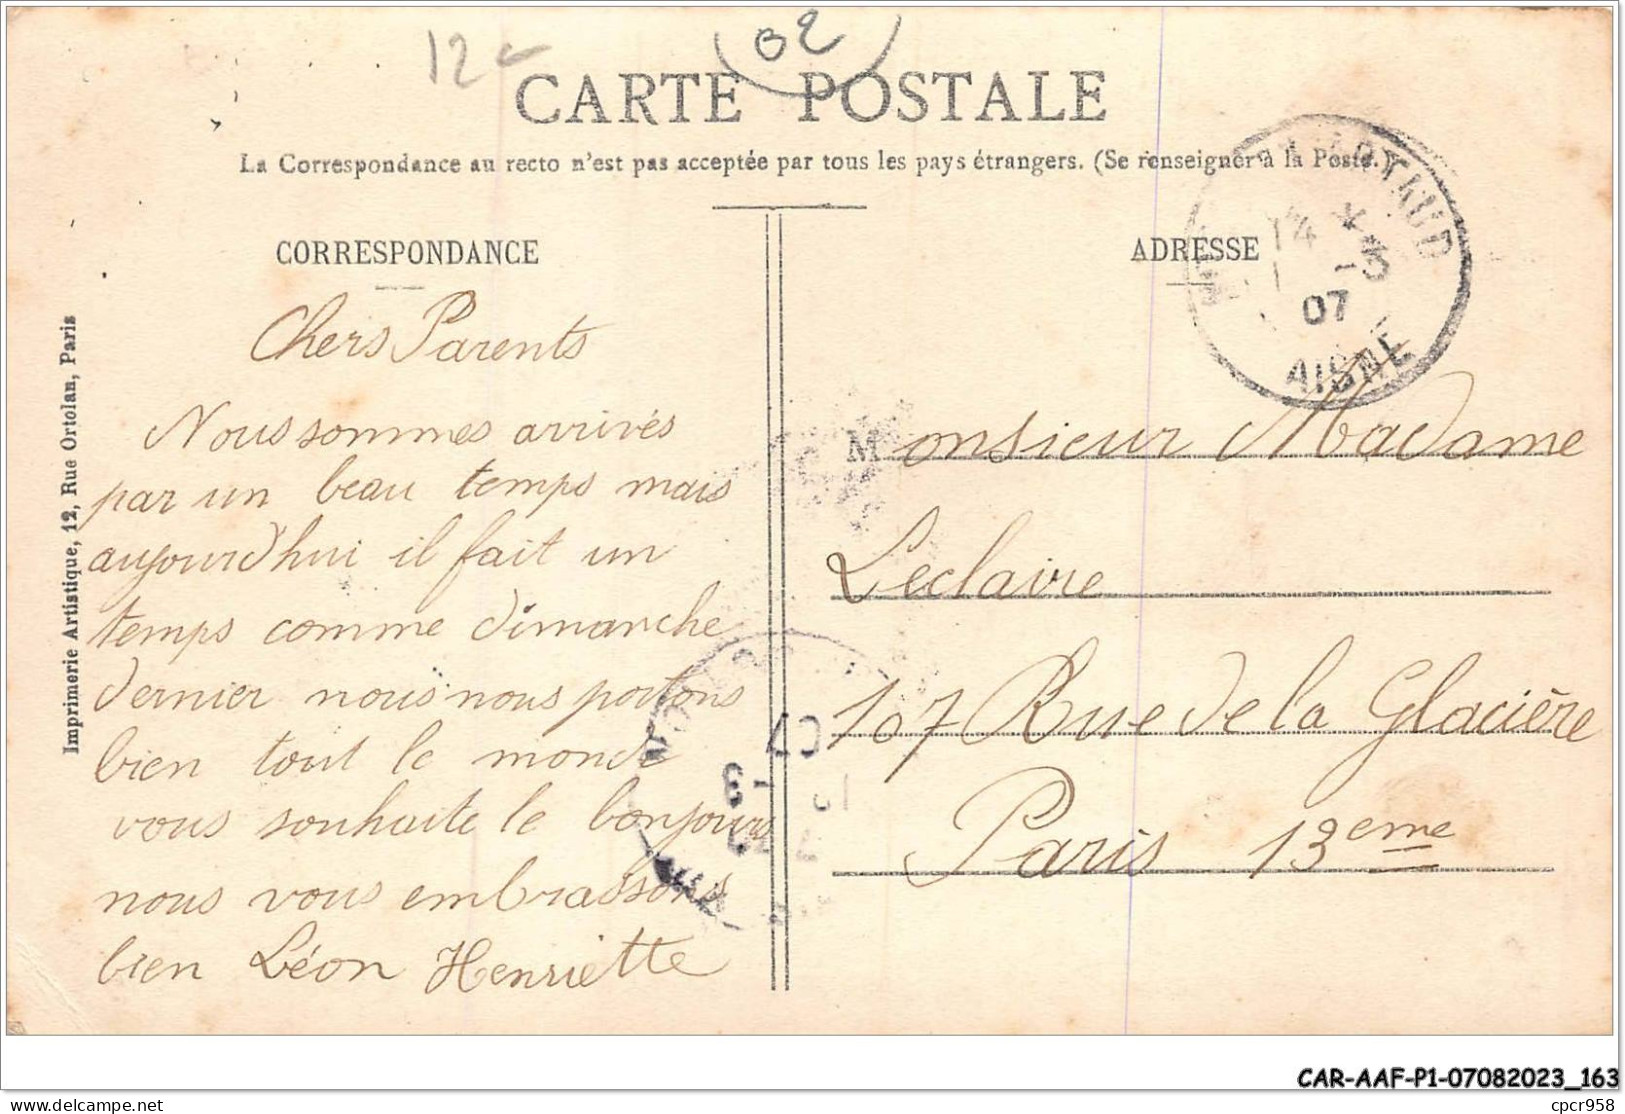 12
02
CARTE POSTALE
La Correspondance au recto n'est pas acceptée par tous les pays étrangers. (Se renseigner à la Poste.)
CORRESPONDANCE
Chers Parents
Nous sommes arrivés
par un beau temps mais
aujourd'hui il fait un
temps comme dimanche
dernier nous nous portons
bien tout le monde
vous souhaite le bonjours
nous vous embrassons
bien Léon Henriette
Imprimerie Artistique, 12, Rue Ortolan, Paris
ADRESSE
Monsieur Madame
Leclaire
107 Rue de la Glacière
Paris 13eme
14
1 -3
07
AISNE
07
-3
CAR-AAF-P1-07082023_163
delcampe.net
cpcr958